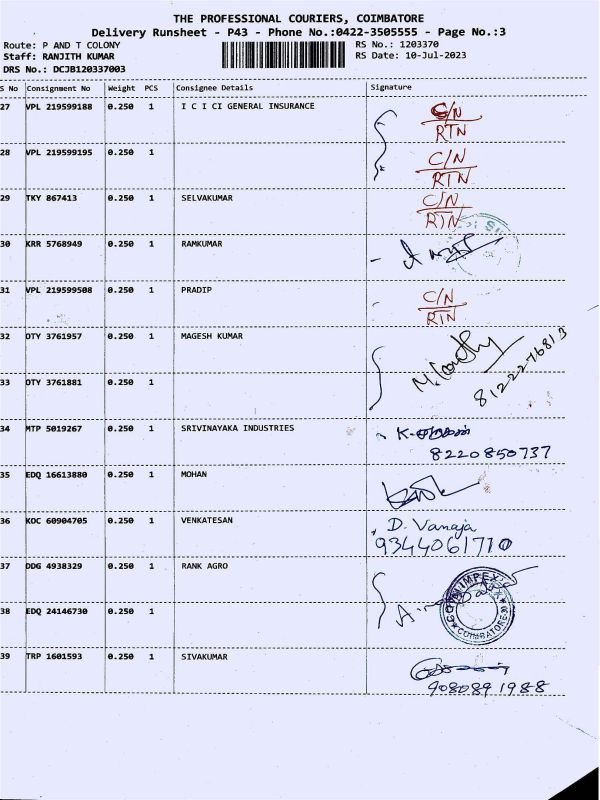 THE PROFESSIONAL COURIERS, COIMBATORE
Delivery Runsheet - P43 - Phone No.:0422-3505555 - Page No.:3
Route: P AND T COLONY RS No.: 1203370
Staff: RANJITH KUMAR RS Date: 10-Jul-2023
DRS No.: DCJB120337003
S No Consignment No Weight PCS Consignee Details Signature
27 VPL 219599188 0.250 1 I C I CI GENERAL INSURANCE C/N
RTN
28 VPL 219599195 0.250 1 C/N
RTN
29 TKY 867413 0.250 1 SELVAKUMAR C/N
RTN
30 KRR 5768949 0.250 1 RAMKUMAR
31 VPL 219599508 0.250 1 PRADIP C/N
RTN
32 OTY 3761957 0.250 1 MAGESH KUMAR
8122276813
33 OTY 3761881 0.250 1
34 MTP 5019267 0.250 1 SRIVINAYAKA INDUSTRIES
8220850737
35 EDQ 16613880 0.250 1 MOHAN
36 KOC 60904705 0.250 1 VENKATESAN D. Vanaja
9344061710
37 DDG 4938329 0.250 1 RANK AGRO
38 EDQ 24146730 0.250 1 COIMBATORE
39 TRP 1601593 0.250 1 SIVAKUMAR
9080891988